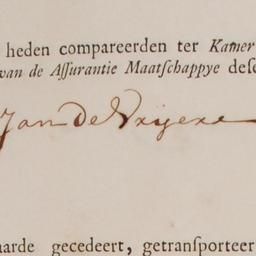 heden compareerden ter Kamer
van de Aſſurantie Maatſchappye deſe
Jan De Vryere
aarde gecedeert, getranſporteer